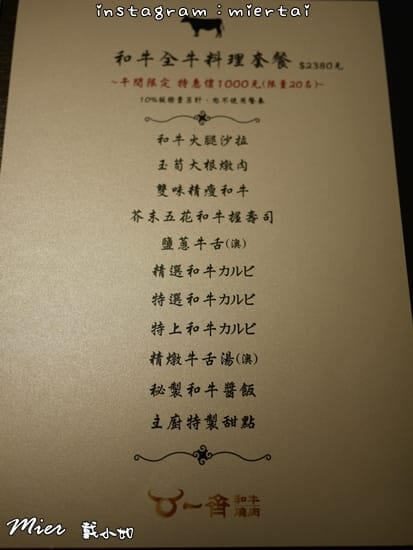 instagram：miertai
和牛全牛料理套餐 $2380元
~午間限定 特惠價1000元(限量20名)~
10%服務費另計、恕不使用餐券
和牛大腿沙拉
玉筍大根燉肉
雙味精瘦和牛
芥末五花和牛握壽司
鹽蔥牛舌(澳)
精選和牛カルビ
特選和牛カルビ
特上和牛カルビ
精燉牛舌湯(澳)
秘製和牛醬飯
主廚特製甜點
一齊 和牛
燒肉
Mier 戴小如